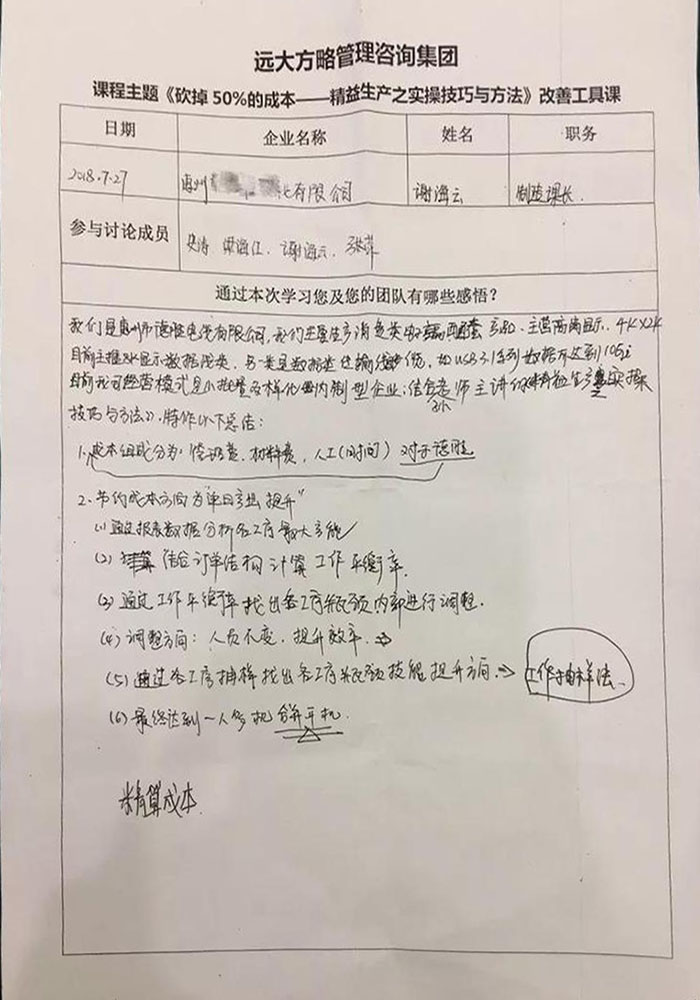 远大方略管理咨询集团
课程主题《砍掉 50%的成本——精益生产之实操技巧与方法》改善工具课
日期 企业名称 姓名 职务
2018.7.27 惠州 有限公司 谢海云 制造课长
参与讨论成员 梁海江、谢海云、张萍
通过本次学习您及您的团队有哪些感悟?
我们是惠州市德胜电线有限公司,我们主要生产消费类 主营高清显示、4K×2K
目前主推8K显示数据线类,另一类是数据类传输线缆,如USB3.1系列数据
目前我司经营模式是小批量多样化 型企业;结合 老师主讲 精益生产之实操
技巧与方法》,特作以下总结:
1、成本组成分为: 材料费,人工(时间)对于德胜
2、节约成本方向为"单日产出提升"
(1) 通过报表数据分析各工序最大产能
(2) 结合订单结构计算工作平衡率.
(3) 通过工作平衡率找出各工序瓶颈内部进行调整.
(4) 调整方向:人员不变,提升效率.
(5) 通过各工序抽样找出各工序瓶颈技能提升方向. → 工作抽样法、
(6) 最终达到一人多机 合并开机.
精算成本